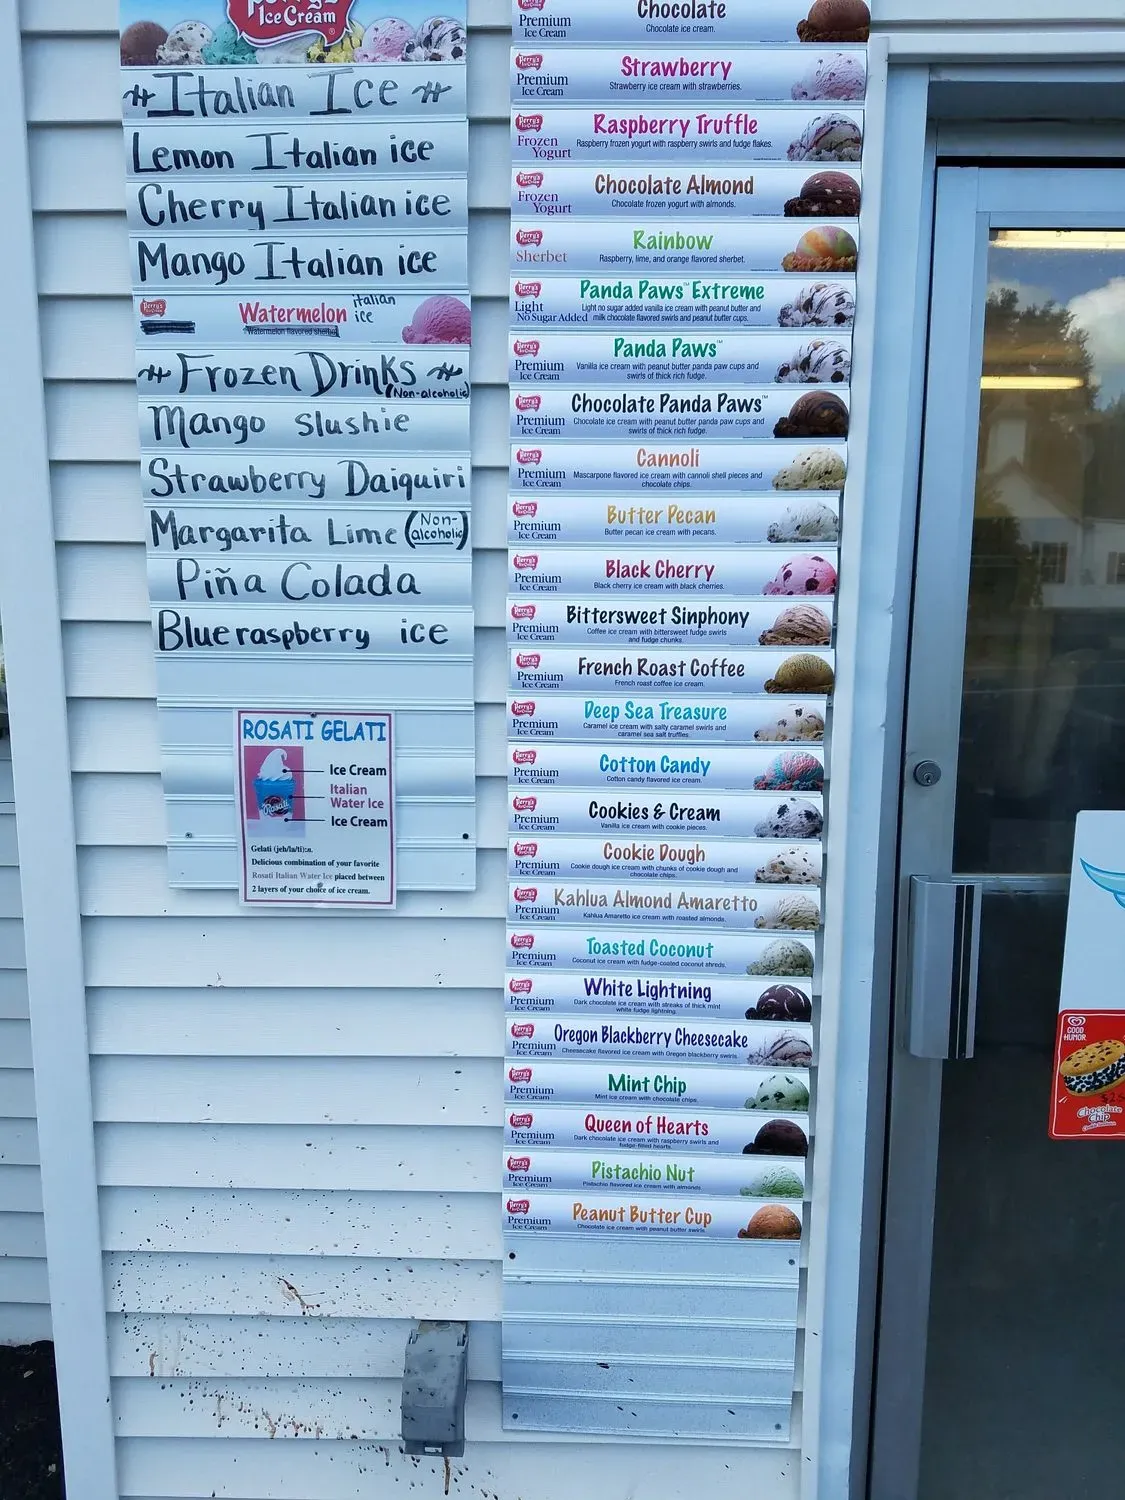 Perry's
Ice Cream
Italian Ice
Lemon Italian ice
Cherry Italian ice
Mango Italian ice
Perry's
Watermelon italian ice
Watermelon flavored sherbet
Frozen Drinks
(Non-alcoholic)
Mango Slushie
Strawberry Daiquiri
Margarita Lime (Non-alcoholic)
Piña Colada
Blue raspberry ice
ROSATI GELATI
Ice Cream
Italian
Water Ice
Rosati
Ice Cream
Gelati (jeh/la/ti):n.
Delicious combination of your favorite
Rosati Italian Water Ice placed between
2 layers of your choice of ice cream.
Premium
Ice Cream
Chocolate
Chocolate ice cream.
Perry's
Premium
Ice Cream
Strawberry
Strawberry ice cream with strawberries.
Perry's
Frozen
Yogurt
Raspberry Truffle
Raspberry frozen yogurt with raspberry swirls and fudge flakes.
Perry's
Frozen
Yogurt
Chocolate Almond
Chocolate frozen yogurt with almonds.
Perry's
Sherbet
Rainbow
Raspberry, lime, and orange flavored sherbet.
Perry's
Light
No Sugar Added
Panda Paws™ Extreme
Light no sugar added vanilla ice cream with peanut butter and
milk chocolate flavored swirls and peanut butter cups.
Perry's
Premium
Ice Cream
Panda Paws™
Vanilla ice cream with peanut butter panda paw cups and
swirls of thick rich fudge.
Perry's
Premium
Ice Cream
Chocolate Panda Paws™
Chocolate ice cream with peanut butter panda paw cups and
swirls of thick rich fudge.
Perry's
Premium
Ice Cream
Cannoli
Mascarpone flavored ice cream with cannoli shell pieces and
chocolate chips.
Perry's
Premium
Ice Cream
Butter Pecan
Butter pecan ice cream with pecans.
Perry's
Premium
Ice Cream
Black Cherry
Black cherry ice cream with black cherries.
Perry's
Premium
Ice Cream
Bittersweet Sinphony
Coffee ice cream with bittersweet fudge swirls
and fudge chunks.
Perry's
Premium
Ice Cream
French Roast Coffee
French roast coffee ice cream.
Perry's
Premium
Ice Cream
Deep Sea Treasure
Caramel ice cream with salty caramel swirls and
caramel sea salt truffles.
Perry's
Premium
Ice Cream
Cotton Candy
Cotton candy flavored ice cream.
Perry's
Premium
Ice Cream
Cookies & Cream
Vanilla ice cream with cookie pieces.
Perry's
Premium
Ice Cream
Cookie Dough
Cookie dough ice cream with chunks of cookie dough and
chocolate chips.
Perry's
Premium
Ice Cream
Kahlua Almond Amaretto
Kahlua Amaretto ice cream with roasted almonds.
Perry's
Premium
Ice Cream
Toasted Coconut
Coconut ice cream with fudge-coated coconut shreds.
Perry's
Premium
Ice Cream
White Lightning
Dark chocolate ice cream with streaks of thick mint
white fudge lightning.
Perry's
Premium
Ice Cream
Oregon Blackberry Cheesecake
Cheesecake flavored ice cream with Oregon blackberry swirls.
Perry's
Premium
Ice Cream
Mint Chip
Mint ice cream with chocolate chips.
Perry's
Premium
Ice Cream
Queen of Hearts
Dark chocolate ice cream with raspberry swirls and
fudge-filled hearts.
Perry's
Premium
Ice Cream
Pistachio Nut
Pistachio flavored ice cream with almonds.
Perry's
Premium
Ice Cream
Peanut Butter Cup
Chocolate ice cream with peanut butter swirls.
GOOD
HUMOR
Chocolate
Chip